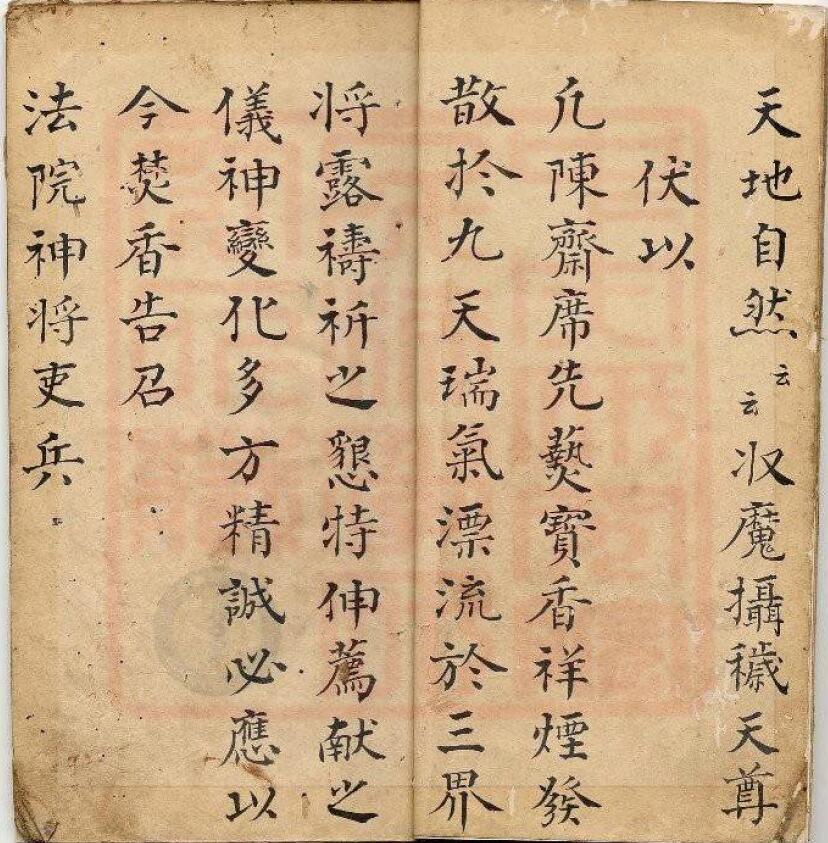 天地自然云云収魔攝穢天尊
伏以
凢陳齋席先爇寳香祥煙發
散扵九天瑞氣漂流扵三界
将露禱祈之懇特伸薦献之
儀神變化多方精誠必應以
今焚香告召
法院神将吏兵